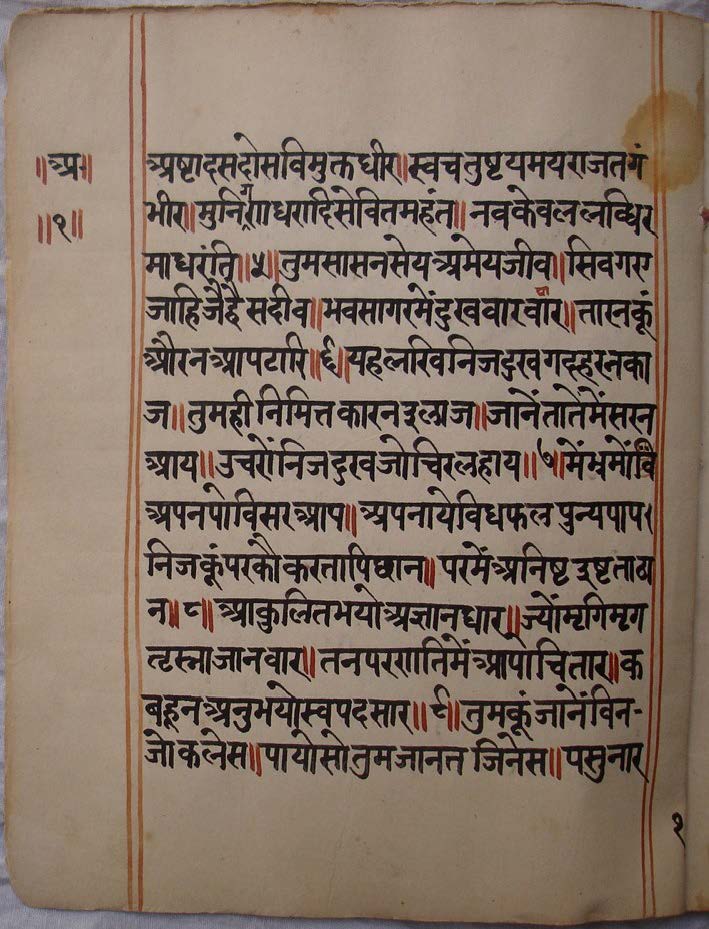 ॥अ॰॥
॥१॥
अष्टादसदोसविमुक्तधीर॥स्वचतुष्टयमयराजतगं
भीर॥मुनिगणधरादिसेवितमहंत॥नवकेवललब्धिर
माधरंति॥५॥तुमसासनसेयअमेयजीव॥सिवगए
जाहिजैहैसदीव॥भवसागरमेंदुखवारवार॥तारनकूं
औरनआपटारि॥६॥यहलखिनिजदुखगदहरनका
ज॥तुमहीनिमित्तकारनइलाज॥जानेंतातेंमेंसरन
आय॥उचरोंनिजदुखजोचिरलहाय॥७॥मेंभ्रमोंवि
अपनपोविसरआप॥अपनायेविधफलपुन्यपाप।
निजकूंपरकौकरतापिछान॥परमेंअनिष्टइष्टताठा
न॥८॥आकुलितभयोअज्ञानधार॥ज्योंमृगिमृग
तृस्नाजानवार॥तनपरणतिमेंआपोचितार॥क
बहूनअनुभयोस्वपदसार॥९॥तुमकूंजानेंविन-
जोकलेस॥पायोसोतुमजानतजिनेस॥पसुनार
१